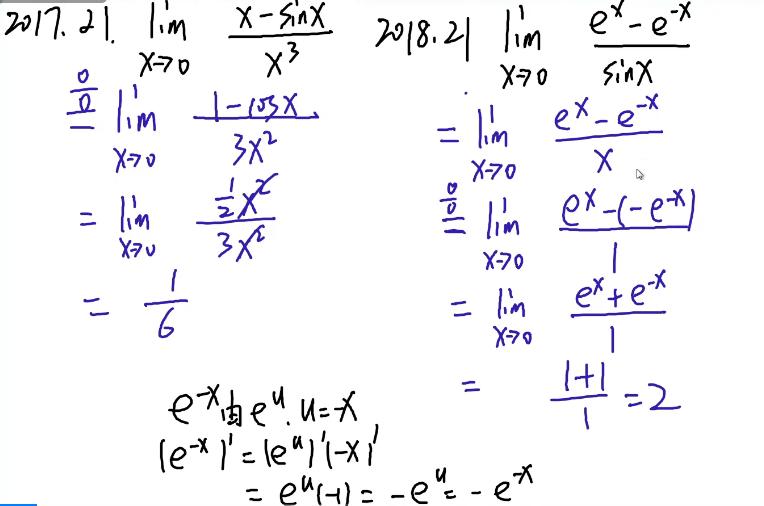 2017.21. lim x→0 (x-sinx)/x³
0/0 = lim x→0 (1-cosx)/3x²
= lim x→0 (½x²)/3x²
= 1/6
2018.21 lim x→0 (eˣ-e⁻ˣ)/sinx
= lim x→0 (eˣ-e⁻ˣ)/x
0/0 = lim x→0 (eˣ-(-e⁻ˣ))/1
= lim x→0 (eˣ+e⁻ˣ)/1
= (1+1)/1 = 2
e⁻ˣ由eᵘ. u=-x
(e⁻ˣ)'=(eᵘ)'(-x)'
= eᵘ(-1) = -eᵘ = -e⁻ˣ